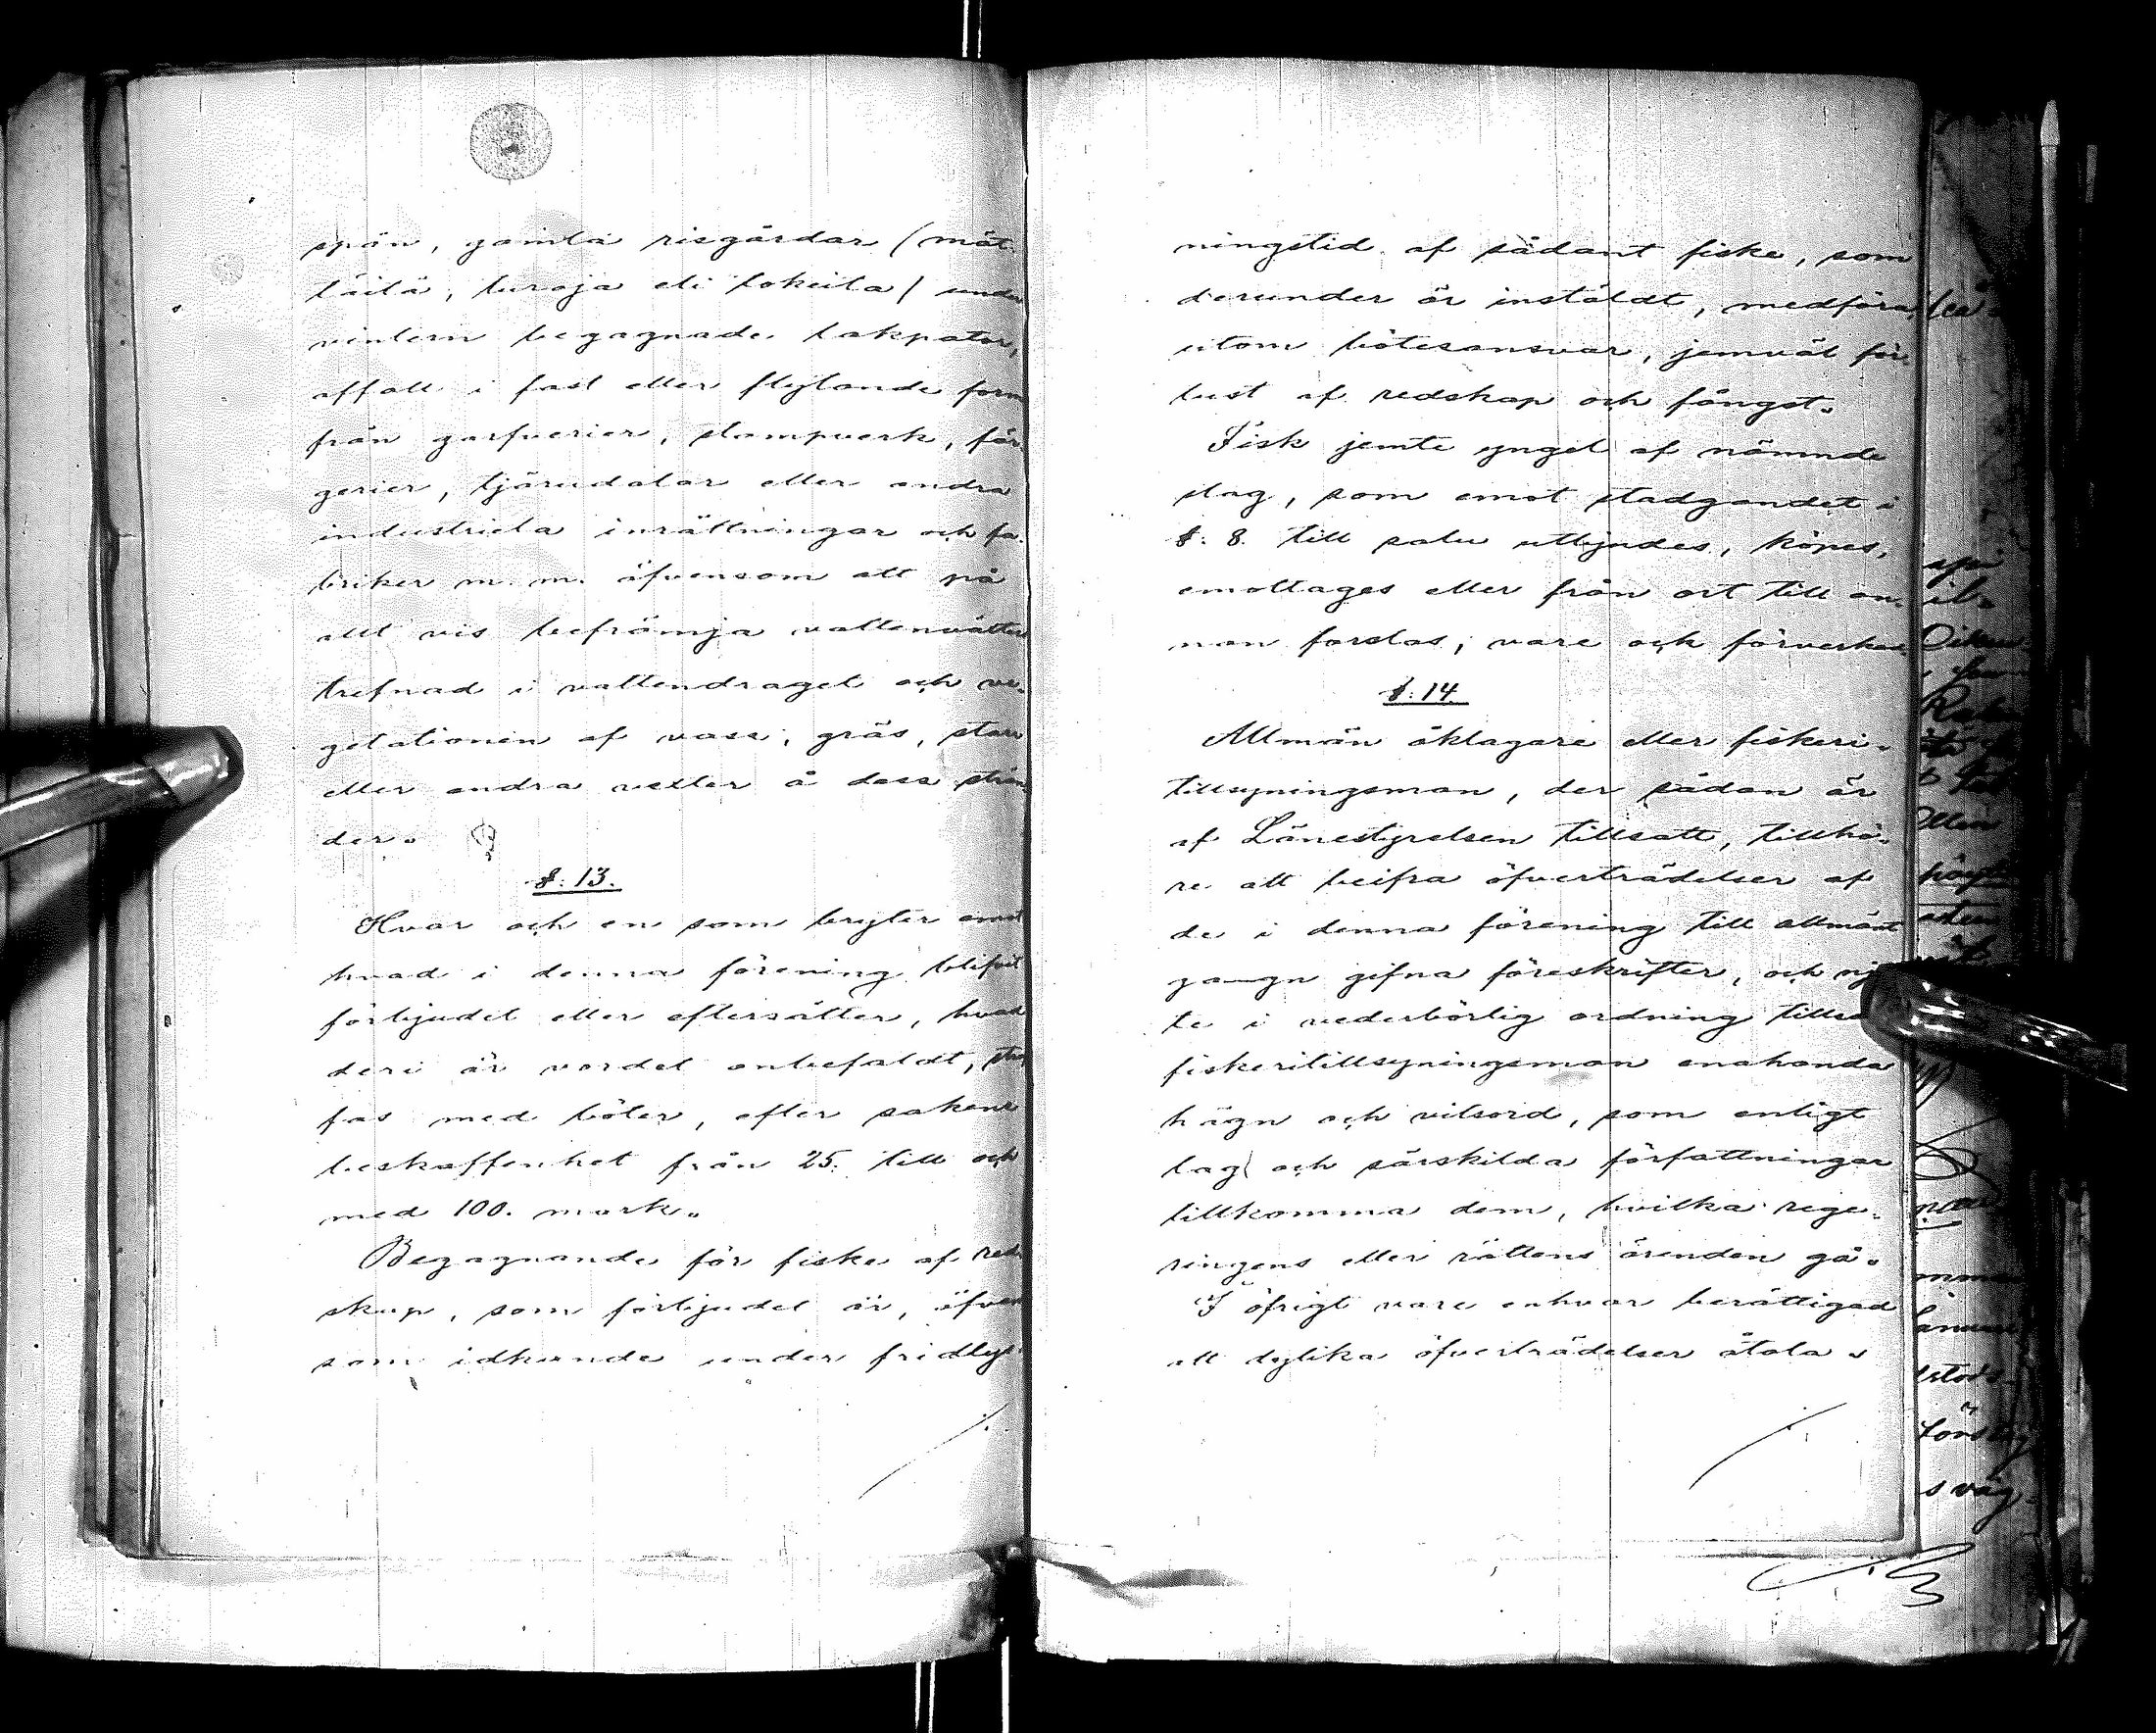 spån, gamla risgårdar (mät-
täitä, turoja eli tokeita) under
vintern begagnade takpator,
affall i fast eller flytande form
från garfverier, stampverk, fär-
gerier, tjärudalar eller andra
industriela inrättningar och fa-
briker m. m. äfvensom att på
allt vis befrämja
trefnad i vattendraget och ve-
getationen af vass, gräs, starr
eller andra vexter å dess strän-
der.
§: 13.
Hvar och en som bryter emot
hvad i denna förening blifvit
förbjudet eller eftersätter, hvad
deri är vordet anbefaldt, straf-
fas med böter, efter sakens
beskaffenhet från 25. till och
med 100. mark.
Begagnande för fiske af red-
skap, som förbjudet är, äfven
som idkande under fridlys-
ningstid af sådant fiske, som
derunder är instäldt, medföra,
utom bötesansvar, jemväl för-
lust af redskap och fångst.
Fisk jemte yngel af nämnde
slag, som emot stadgandet i
§: 8. till salu utbjudes, köpes,
emottages eller från ort till an-
nan forslas, vare ock förverkad
§: 14.
Allmän åklagare eller fiskeri-
tillsyningsman, der sådan är
af Länestyrelsen tillsatt, tillhö-
re att beifra öfverträdelser af
de i denna förening till allmänt
gangn gifna föreskrifter, och nju-
te i vederbörlig ordning
fiskeritillsyningsman enahanda
hägn och vitsord, som enligt
lag och särskilda författningar
tillkomma dem, hvilka rege-
ringens eller rättens ärenden gå.
I öfrigt vare enhvar berättigad
att dylika öfverträdelser åtala.